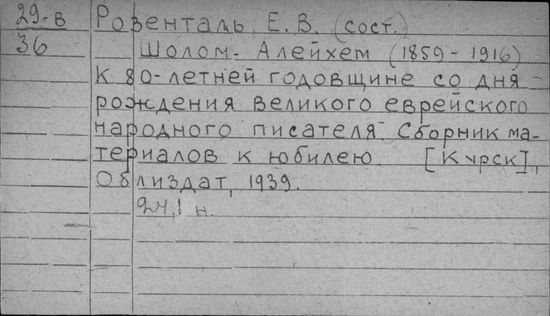 29-в
36
Розенталь, Е.В. (сост.)
Шолом-Алейхем (1859-1916)
К 80-летней годовщине со дня
рождения великого еврейского
народного писателя Сборник ма-
териалов к юбилею. [Курск],
Облиздат, 1939.
24,1 н.